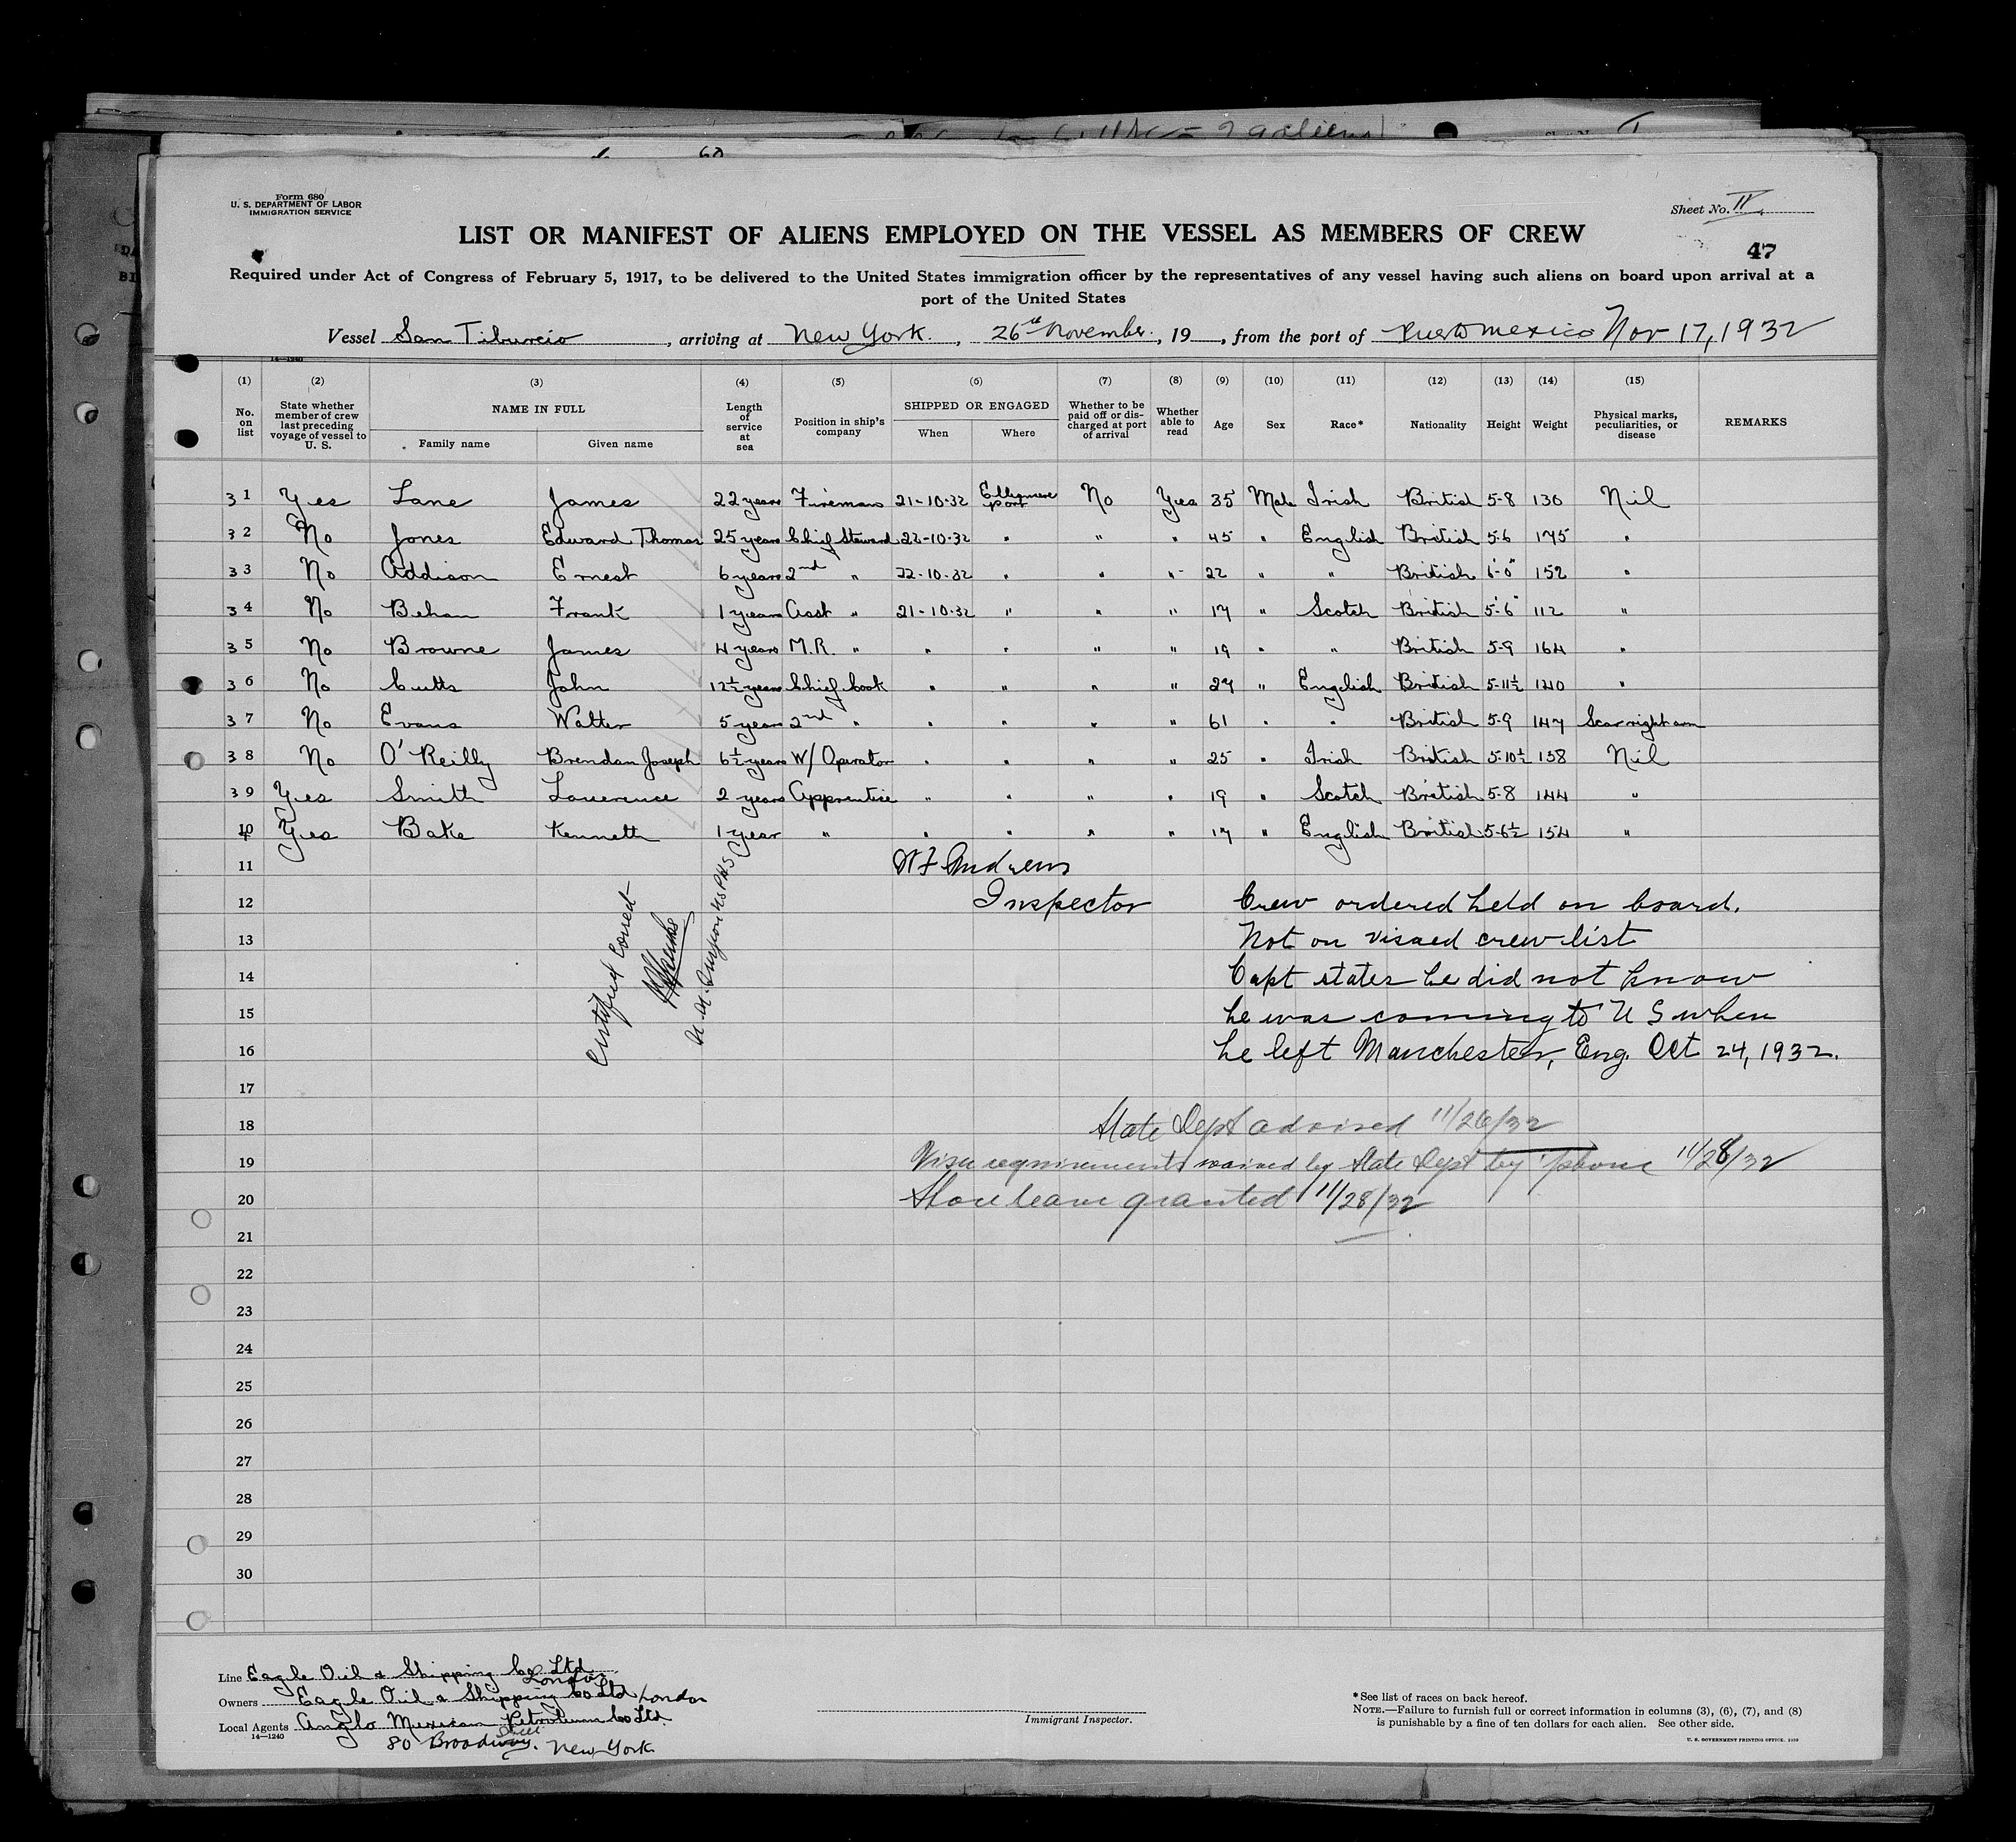 Form 680
U. S. DEPARTMENT OF LABOR
IMMIGRATION SERVICE
Sheet No. II
LIST OR MANIFEST OF ALIENS EMPLOYED ON THE VESSEL AS MEMBERS OF CREW
47
Required under Act of Congress of February 5, 1917, to be delivered to the United States immigration officer by the representatives of any vessel having such aliens on board upon arrival at a
port of the United States
Vessel San Tiburcio, arriving at New York., 26th November., 19__, from the port of Puerto Mexico Nov 17, 1932
14—1240
(1) (2) (3) (4) (5) (6) (7) (8) (9) (10) (11) (12) (13) (14) (15)
No. on list State whether member of crew last preceding voyage of vessel to U. S. NAME IN FULL Family name Given name Length of service at sea Position in ship's company SHIPPED OR ENGAGED When Where Whether to be paid off or discharged at port of arrival Whether able to read Age Sex Race* Nationality Height Weight Physical marks, peculiarities, or disease REMARKS
31 Yes Lane James 22 years Fireman 21-10-32 Ellesmere Port No Yes 35 Male Irish British 5-8 130 Nil
32 No Jones Edward Thomas 25 years Chief Steward 22-10-32 " " " 45 " English British 5-6 175 "
33 No Addison Ernest 6 years 2nd " 22-10-32 " " " 22 " " British 6'-0" 152 "
34 No Behan Frank 1 years Asst " 21-10-32 " " " 17 " Scotch British 5'-6" 112 "
35 No Browne James 4 years M.R. " " " " " 19 " " British 5-9 164 "
36 No Cutts John 12½ years Chief Cook " " " " 27 " English British 5-11½ 140 "
37 No Evans Walter 5 years 2nd " " " " " 61 " " British 5-9 147 Scar right arm
38 No O'Reilly Brendan Joseph 6½ years W/ Operator " " " " 25 " Irish British 5-10½ 158 Nil
39 Yes Smith Lawrence 2 years Apprentice " " " " 19 " Scotch British 5-8 144 "
40 Yes Bake Kenneth 1 year " " " " " 17 " English British 5-6½ 154 "
11 Andrews
12 Inspector Crew ordered held on board.
13 Not on visaed crew list
14 Capt states he did not know
15 he was coming to U S when
16 he left Manchester, Eng. Oct 24, 1932.
Certified Correct
17
18 State Dept advised 11/26/32
19 Visa requirements waived by State Dept by 'phone 11/28/32
20 Shore leave granted 11/28/32
21
22
23
24
25
26
27
28
29
30
Line Eagle Oil & Shipping Co Ltd
London
Owners Eagle Oil & Shipping Co Ltd London
Local Agents Anglo Mexican Petroleum Co Ltd.
14—1240
80 Broad Street New York.
Immigrant Inspector.
*See list of races on back hereof.
NOTE.—Failure to furnish full or correct information in columns (3), (6), (7), and (8)
is punishable by a fine of ten dollars for each alien. See other side.
U. S. GOVERNMENT PRINTING OFFICE